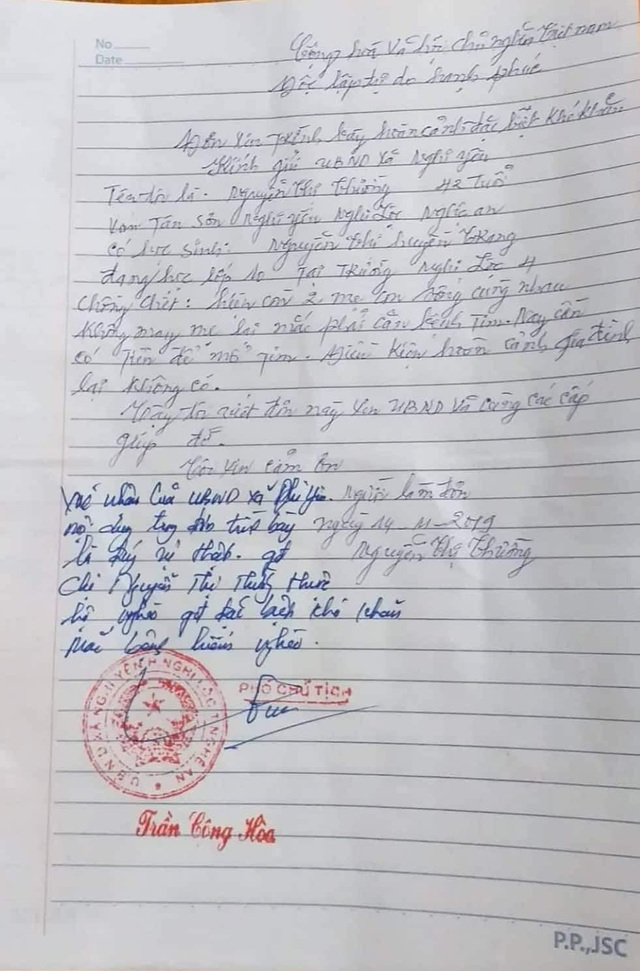 No
Date
Cộng hoà xã hội chủ nghĩa Việt nam
Độc lập tự do hạnh phúc
Đơn xin trình bày hoàn cảnh đặc biệt khó khăn
Kính gửi UBND xã Nghi yên
Tên tôi là. Nguyễn Thị Thường 42 Tuổi
Tân Sơn Nghi yên Nghi Lộc Nghệ an
có học sinh: Nguyễn Thị huyền Trang
đang học lớp 10 Tại Trường Nghi Lộc 4
Chồng chết: hiện còn 2 mẹ con sống cùng nhau
không may mẹ lại mắc phải căn bệnh Tim. Nay cần
có tiền để mổ tim. Điều kiện hoàn cảnh gia đình
lại không có.
Nay tôi viết đơn này xin UBND và cùng các cấp
giúp đỡ.
Tôi xin cảm ơn
Người làm đơn
ngày 14-11-2019
Nguyễn Thị Thường
Xác nhận của UBND xã Nghi Yên.
nội dung trong đơn trình bày
là đúng sự thật.
Chị Nguyễn Thị Thường thuộc
hộ nghèo khó khăn
bệnh hiểm nghèo.
U.B.N.D XÃ NGHI YÊN H.NGHI LỘC T.NGHỆ AN
PHÓ CHỦ TỊCH
Trần Công Hòa
P.P.,JSC